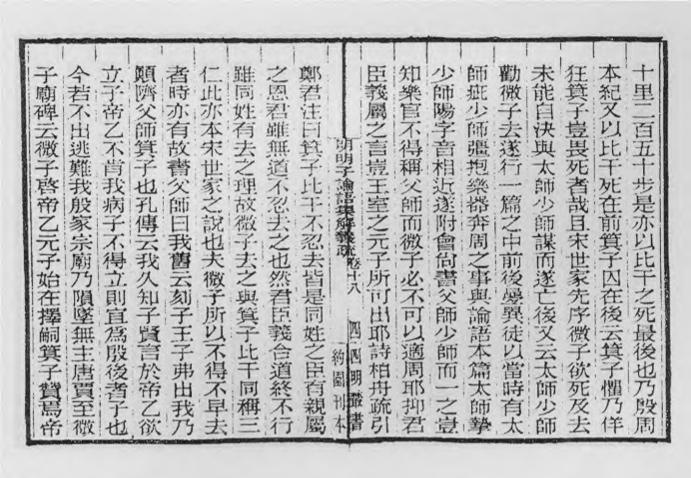 十里二百五十步是亦以比干之死最後也乃殷周
本紀又以比干死在前箕子囚在後云箕子懼乃佯
狂箕子豈畏死者哉且宋世家先序微子欲死及去
未能自決與太師少師謀而遂亡後又云太師少師
勸微子去遂行一篇之中前後舛異徒以當時有太
師疵少師彊抱樂器奔周之事與論語本篇太師摯
少師陽字音相近遂附會尙書父師少師而一之豈
知樂官不得稱父師而微子必不可以適周耶抑君
臣義屬之言豈王室之元子所可出耶詩柏舟疏引
明明子論語集解義疏 卷十八 四 四明叢書
約園刊本
鄭君注曰箕子比干不忍去皆是同姓之臣有親屬
之恩君雖無道不忍去之也然君臣義合道終不行
雖同姓有去之理故微子去之與箕子比干同稱三
仁此亦本宋世家之說也夫微子所以不得不早去
者時亦有故書父師曰我舊云刻子王子弗出我乃
顚隮父師箕子也孔傳云我久知子賢言於帝乙欲
立子帝乙不肯我病子不得立則宜爲殷後者子也
今若不出逃難我殷家宗廟乃隕墜無主唐賈至微
子廟碑云微子啓帝乙元子始在擇嗣箕子贊焉帝